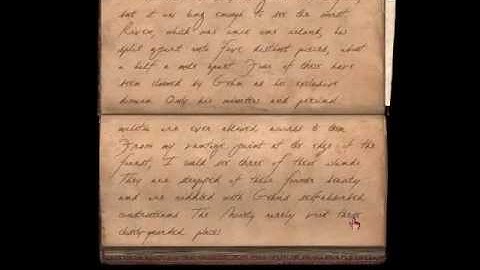 but it was long enough to see the worst.
Riven, which was once one island, has
split apart into five distinct pieces, about
a half a mile apart. Four of these have
been claimed by Gehn as his exclusive
domain. Only his ministers and personal
militia are even allowed access to them.
From my vantage point at the edge of the
forest, I could see three of these islands.
They are stripped of their former beauty
and are riddled with Gehn's self-absorbed
contraptions. The Moiety rarely visit these
closely-guarded places